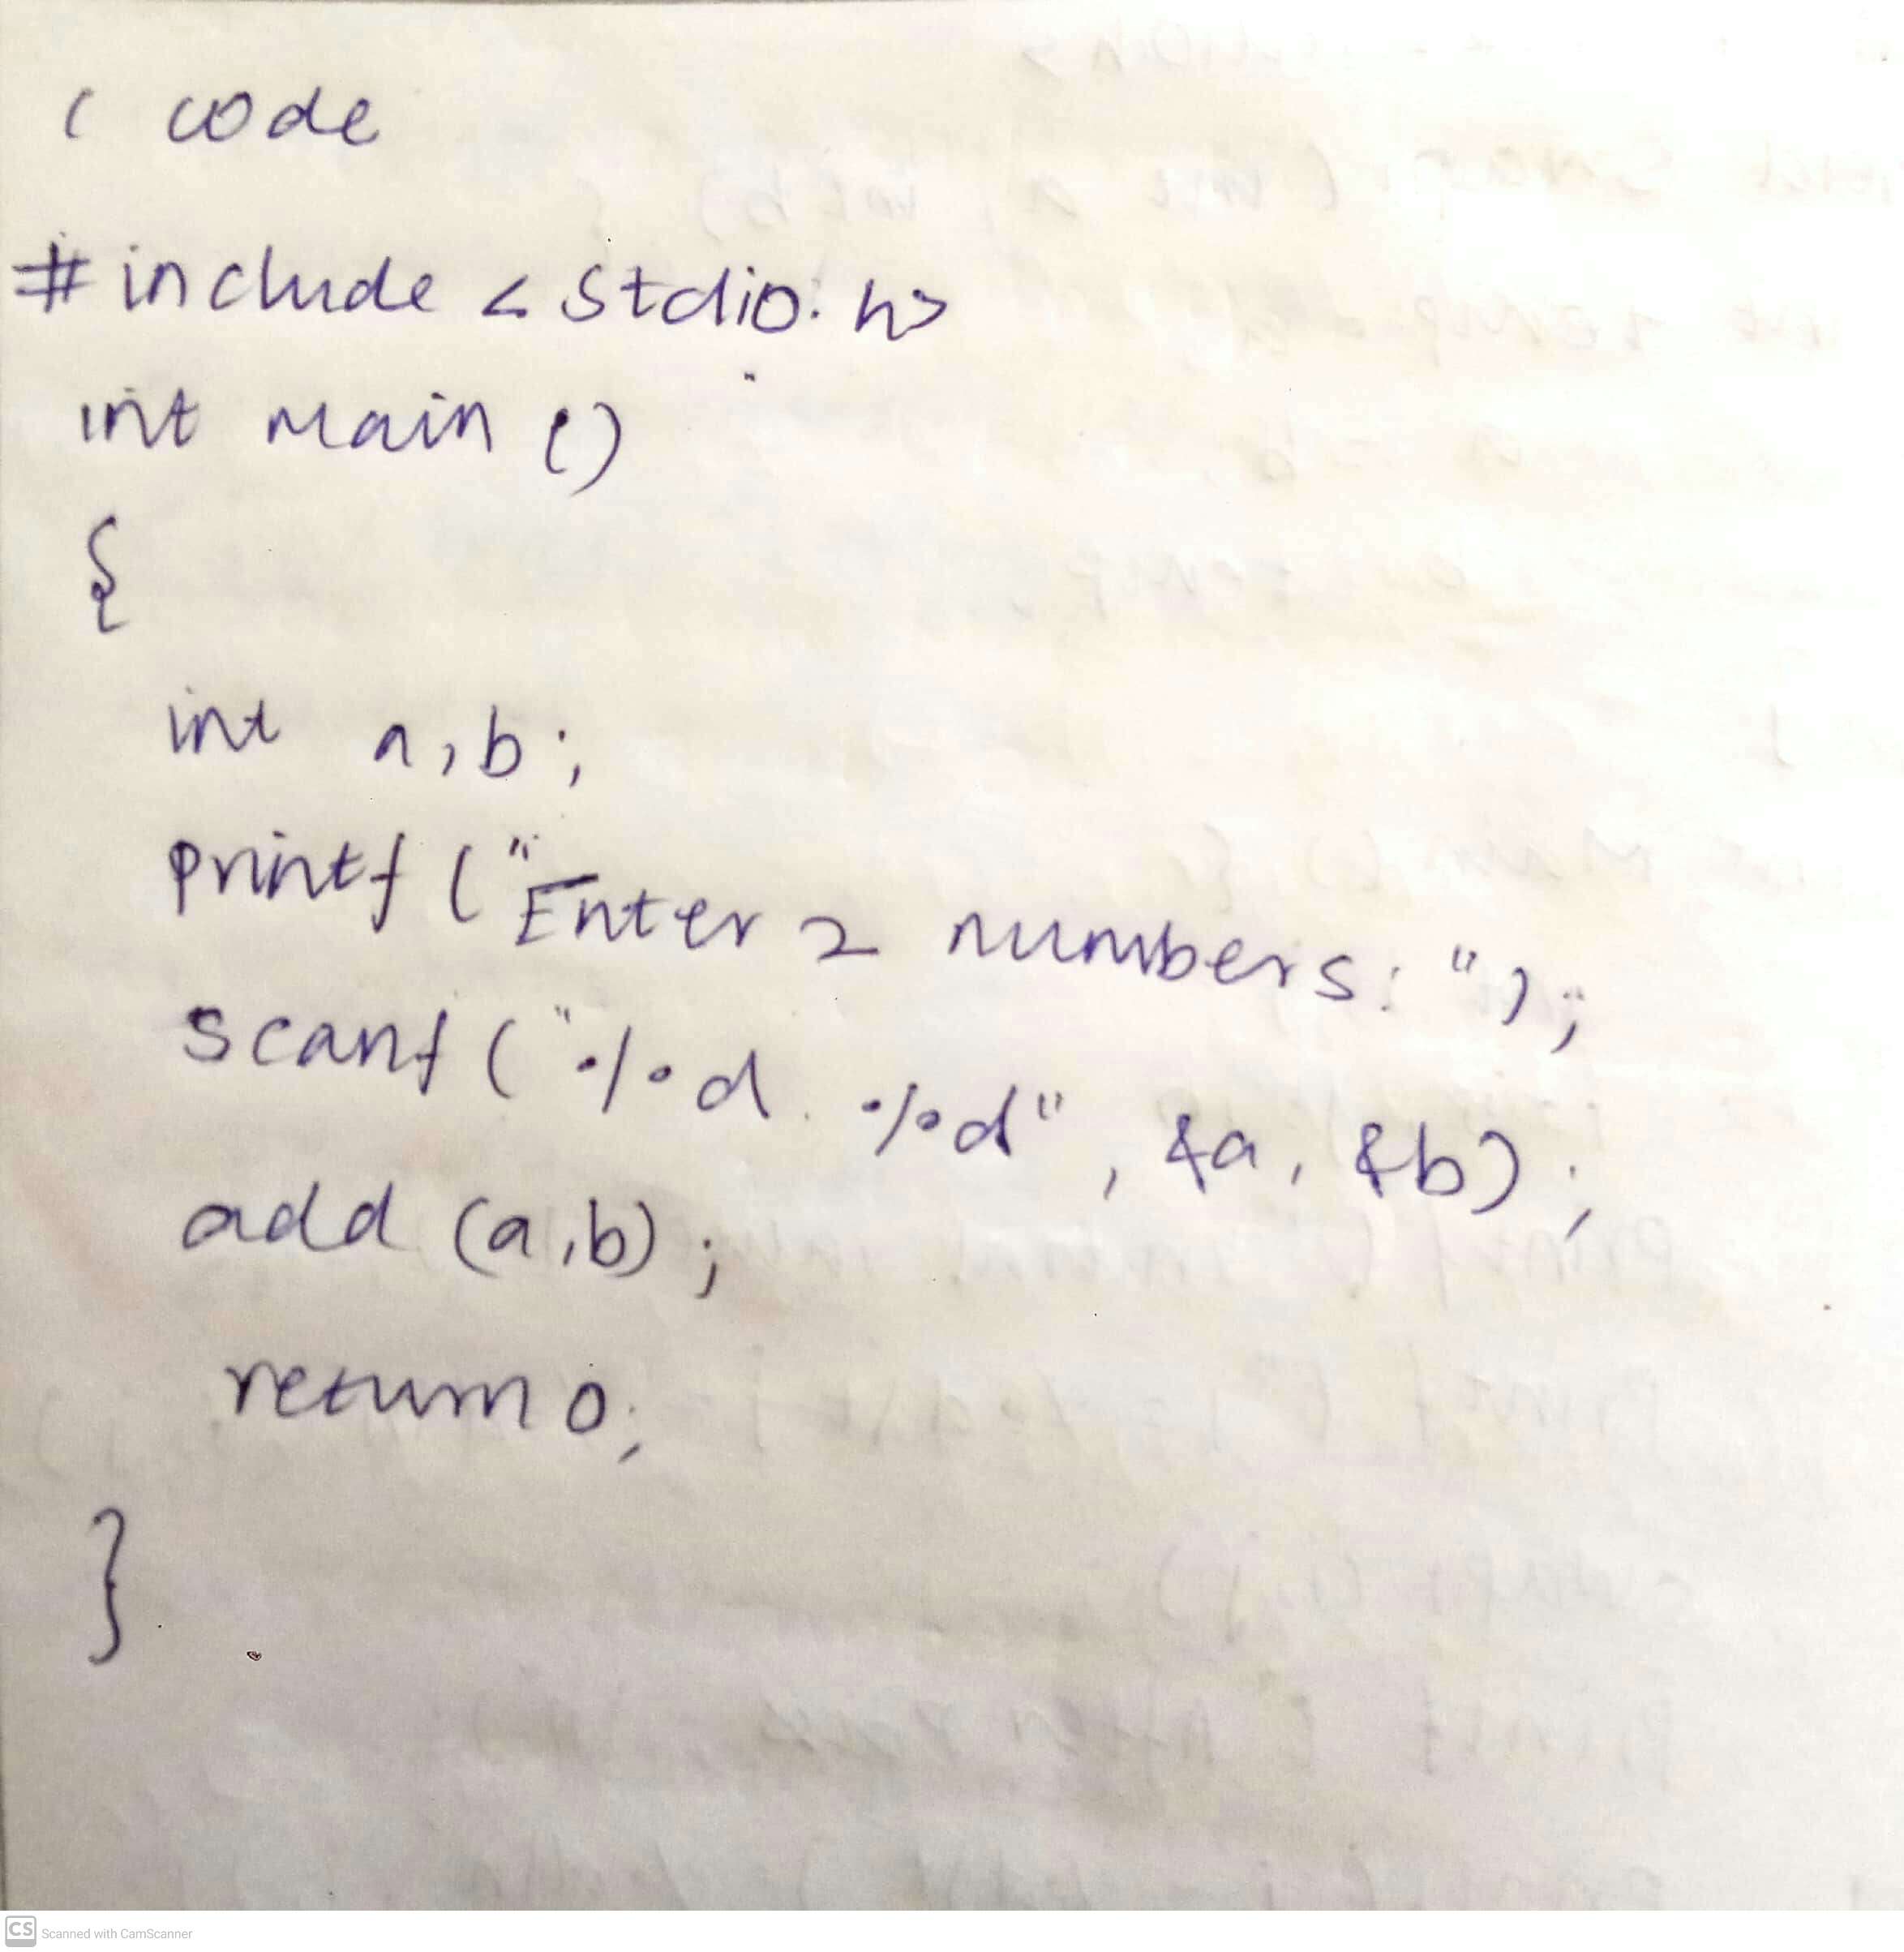 C code
#include <stdio.h>
int main ()
{
int a,b;
printf ("Enter 2 numbers: ");
scanf ("%d %d", &a, &b);
add (a,b);
return 0;
}
CS Scanned with CamScanner